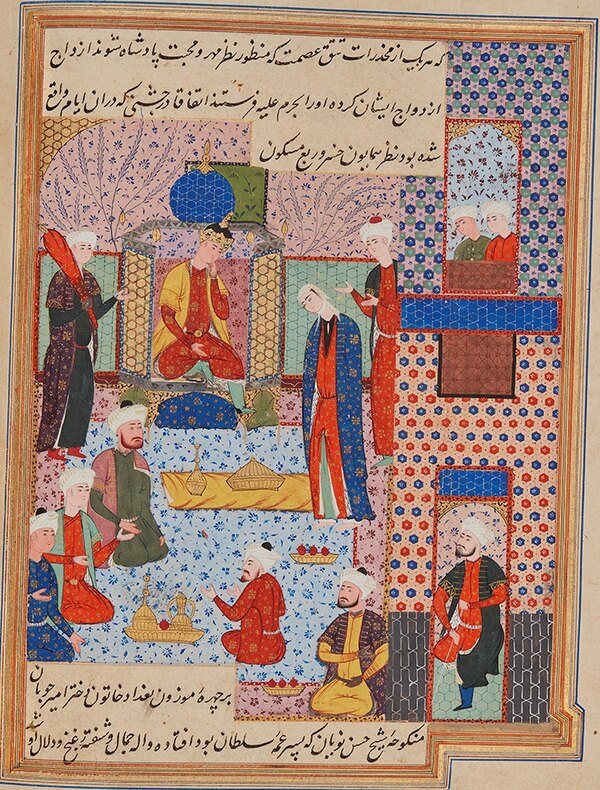 که هر یک از مخدرات تتق عصمت که منظور نظر مهر و محبت پادشاه شوند ازواج
از زواج ایشان کرده اورا بحرم علیه فرستند اتفاقا در جشنی که دران ایام واقع
شده بود نظر همایون خسرو ربع مسکون
بر چهرۀ موزون بغداد خاتون دختر امیر چوبان
منکوحه شیخ حسن نویان که پسر عمه سلطان بود افتاده واله جمال و شیفته غنج و دلال